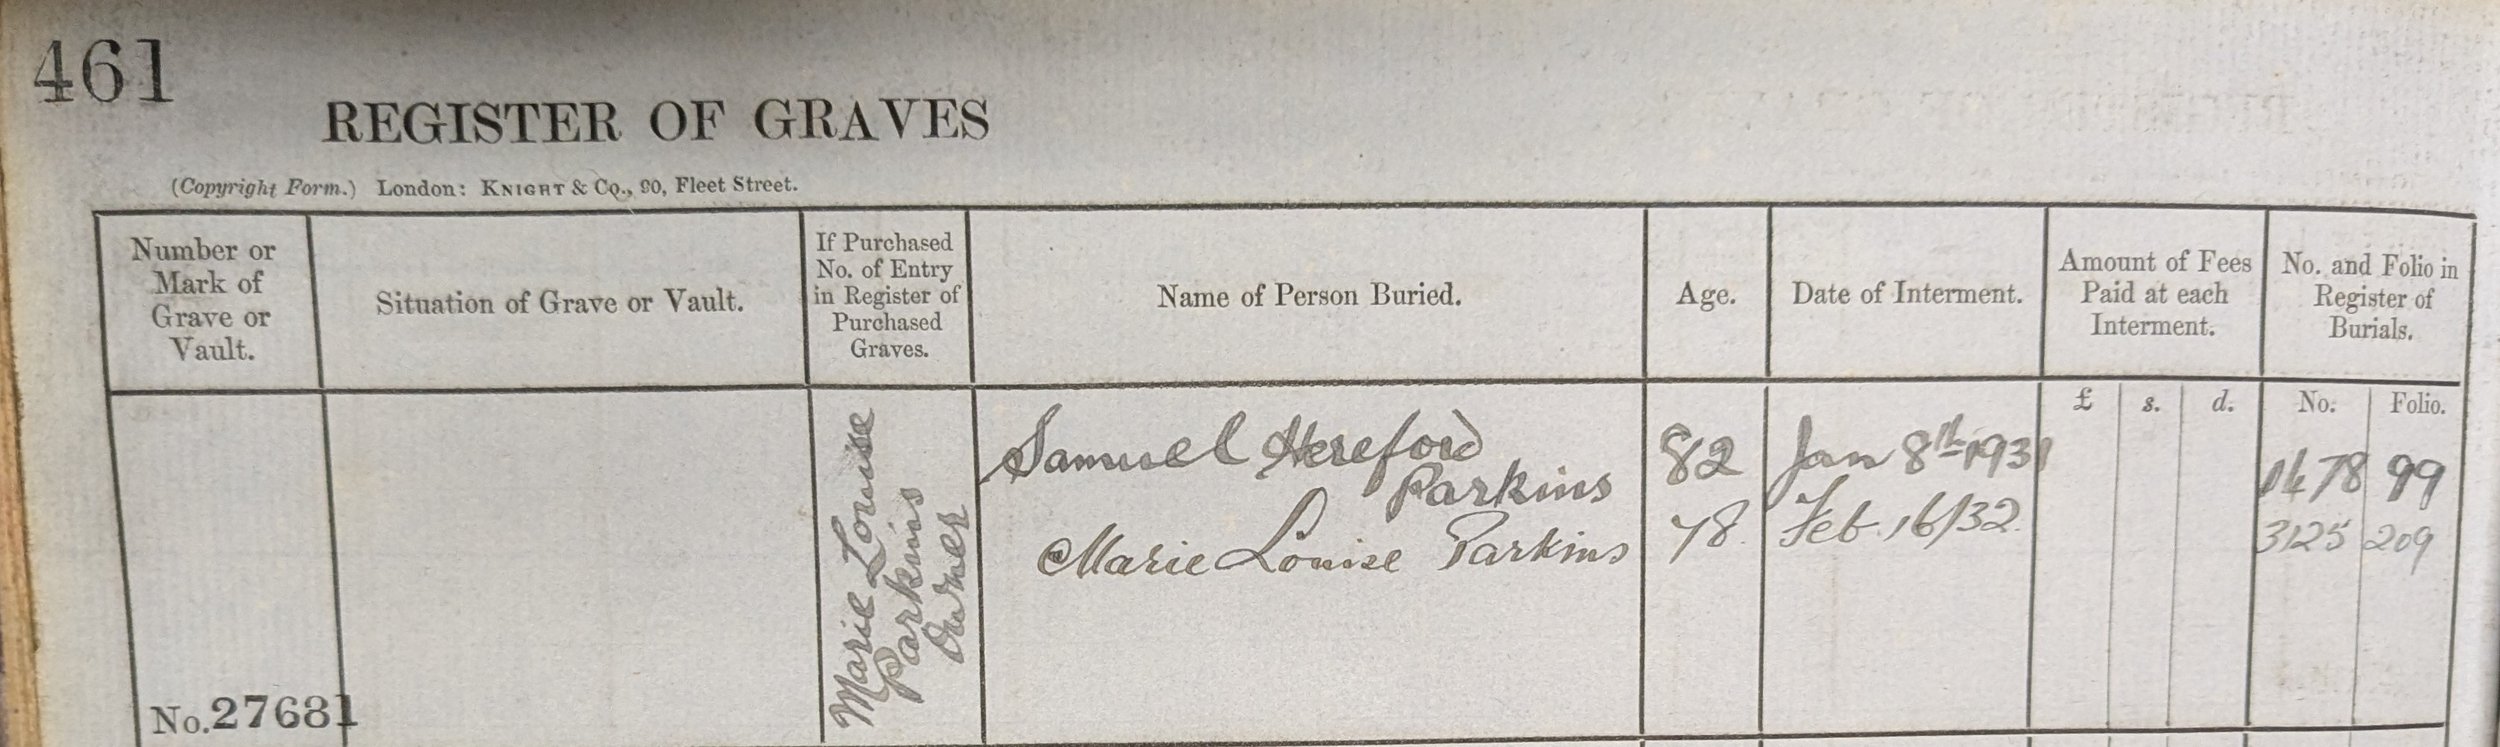 461
REGISTER OF GRAVES
(Copyright Form.) London: KNIGHT & Co., 90, Fleet Street.
Number or
Mark of
Grave or
Vault.
Situation of Grave or Vault.
If Purchased
No. of Entry
in Register of
Purchased
Graves.
Name of Person Buried.
Age.
Date of Interment.
Amount of Fees
Paid at each
Interment.
No. and Folio in
Register of
Burials.
£ s. d. No. Folio.
Marie Louise
Parkins
Owner
Samuel Hereford
Parkins 82 Jan 8th 1931 1478 99
Marie Louise Parkins 78. Feb. 16/32. 3125 209
No. 27681